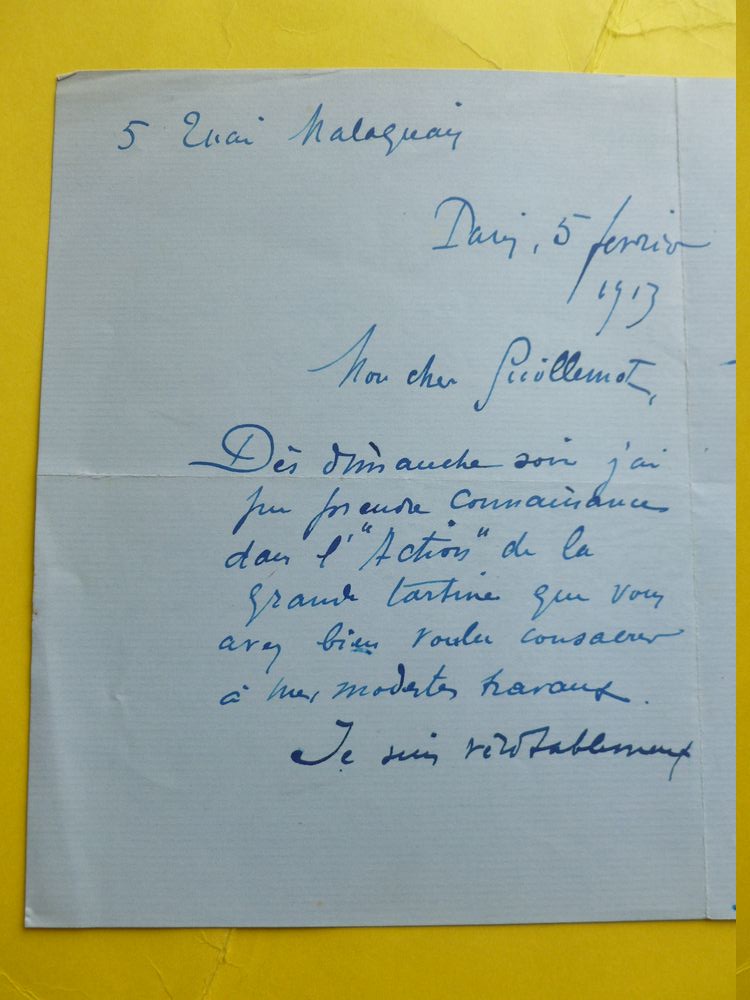 5 Quai Malaquais
Paris, 5 fevrier
1913
Mon cher Guillemot,
Dès dimanche soir j'ai
pu prendre connaissance
dans l'"Action" de la
grande tartine que vous
avez bien voulu consacrer
à mes modestes travaux.
Je suis véritablement